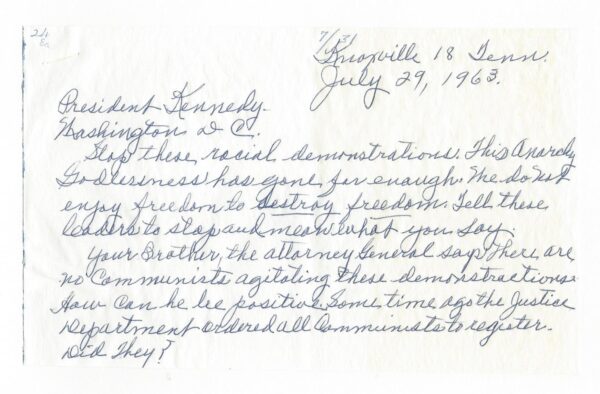 7/31
Knoxville 18 Tenn.
July 29, 1963.
President Kennedy.
Washington D C.
Stop these racial demonstrations. This Anarchy
Godlessness has gone far enough. We do not
enjoy freedom to destroy freedom. Tell these
leaders to stop and mean what you say.
Your Brother, the attorney General says there are
no Communists agitating these demonstractions.
How can he be positive. Some time ago the Justice
Department ordered all Communists to register.
Did They?